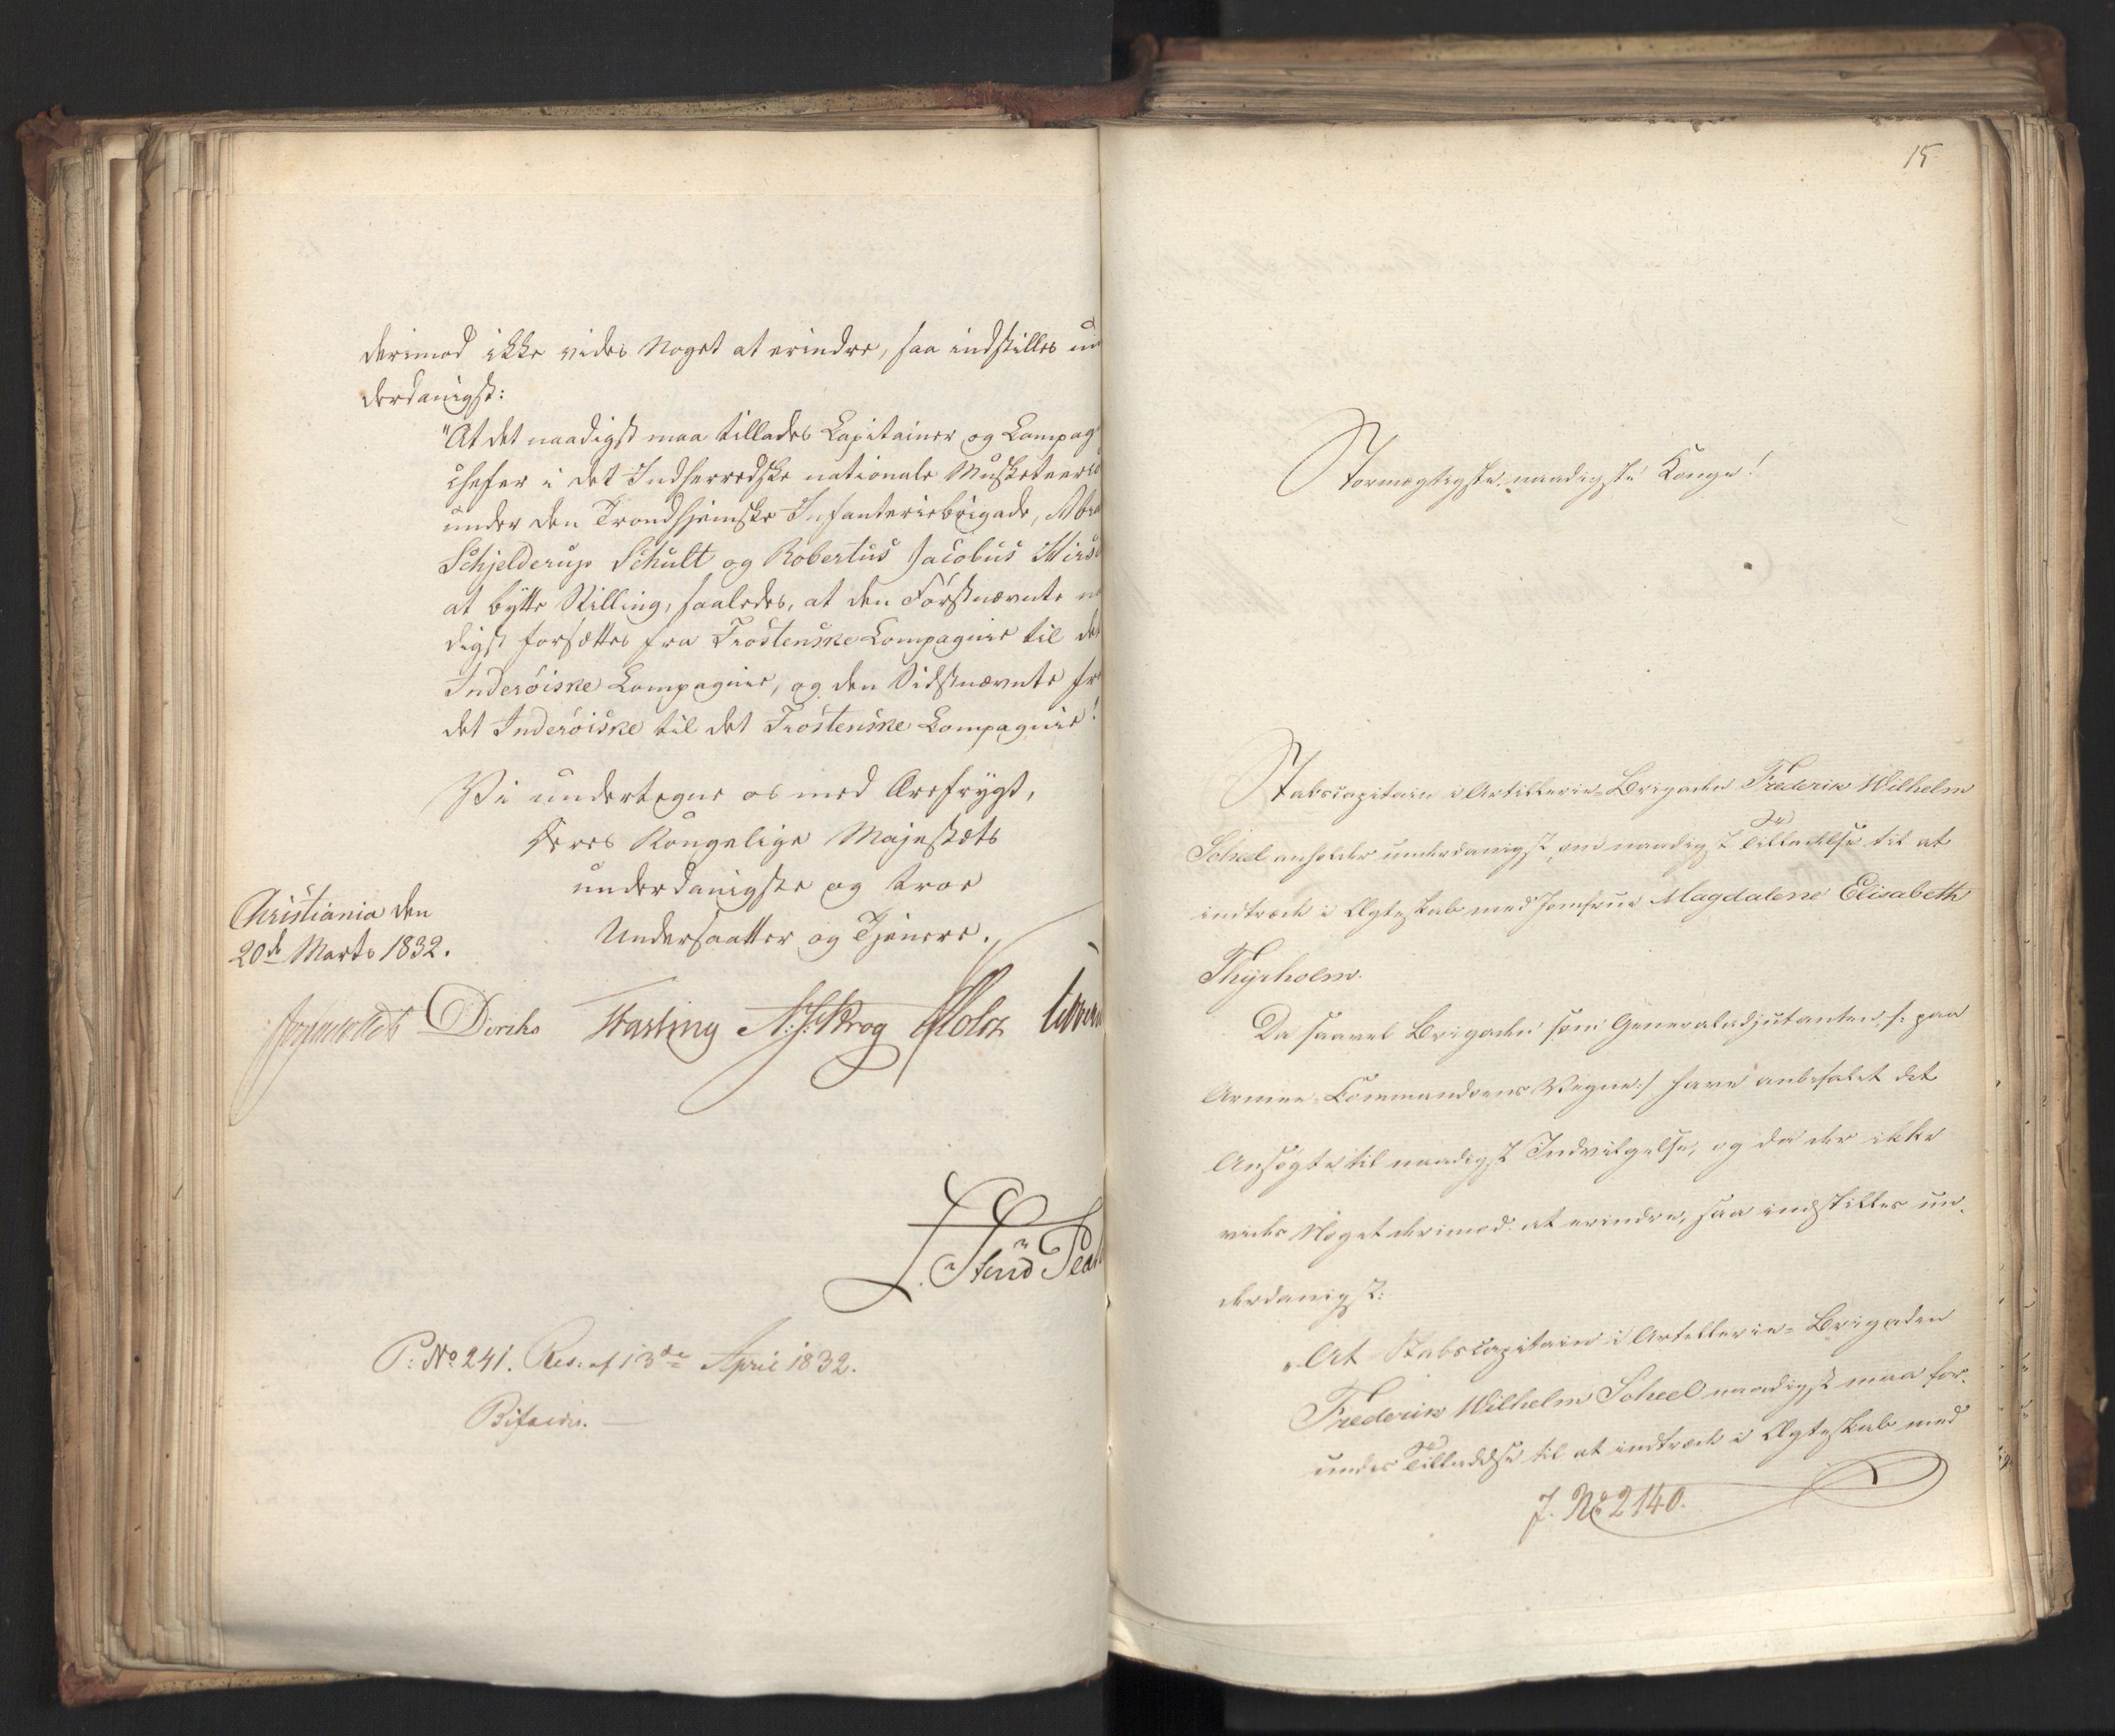 derimod ikke vides Noget at erindre, saa indstilles un
derdanigst:
"At det naadigst maa tillades Capitainer og Compag
chefer i det Indherredske nationale Musketeerco
under den Trondhjemske Infanteriebrigade, Abra
Schjelderup Schult og Robertus Jacobus Hirs
at bytte Stilling, saaledes, at den Förstnævnte na
digst forsættes fra Frostenske Compagnie til det
Inderöiske Compagnie, og den Sidstnævnte fra
det Inderöiske til det Frostenske Compagnie!
Vi undertegne os med Ærefrygt,
Deres Kongelige Majestæts
underdanigste og troe
Undersaatter og Tjenere.
Christiania den
20de Marts 1832.
Diriks Fasting A. J. Krog Holst
P: No 241. Res: af 13de April 1832.
Bifaldes.
15
Stormægtigste, naadigste Konge!
Stabscapitain i Artillerie-Brigaden Frederik Wilhelm
Scheel anholder underdanigst om naadigst Tilladelse til at
indtræde i Ægteskab med Jomfrue Magdalene Elisabeth
Thyrholm.
Da saavel Brigaden som Generaladjutanten /: paa
Armee-Commandoens Vegne:/ have anbefalet det
Ansøgte til naadigst Indvilgelse, og da der ikke
vides Noget derimod at erindre, saa indstilles un-
derdanigst:
"At Stabscapitain i Artillerie-Brigaden
Frederik Wilhelm Scheel naadigst maa for-
undes Tilladelse til at indtræde i Ægteskab med
J. No 2140.